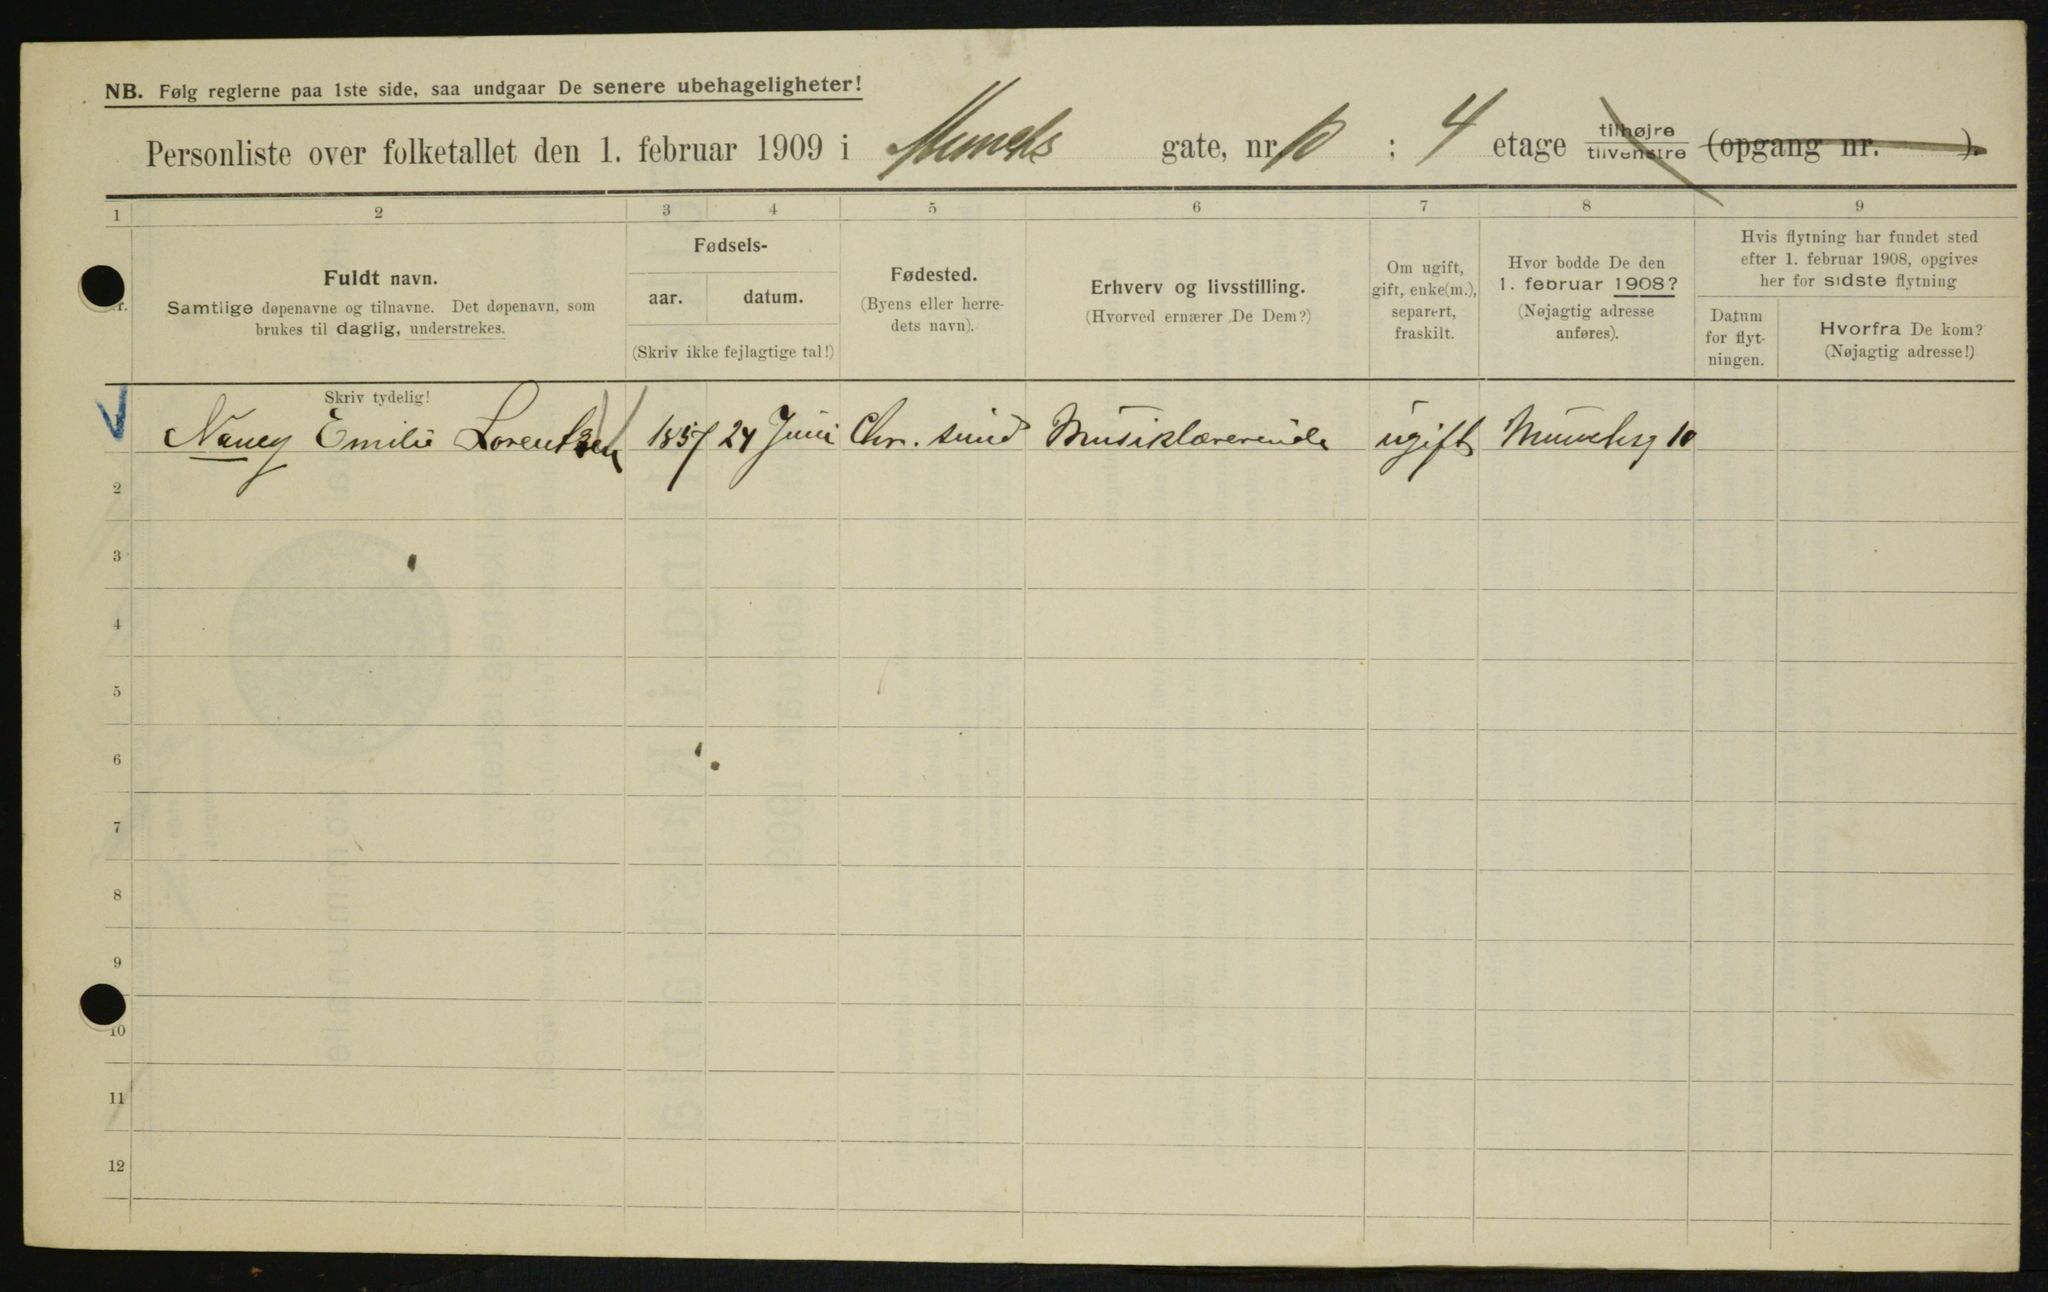 NB. Følg reglerne paa 1ste side, saa undgaar De senere ubehageligheter!
Personliste over folketallet den 1. februar 1909 i Munchs gate, nr. 10 ; 4 etage tilhøjre tilvenstre (opgang nr. ).
1 2 3 4 5 6 7 8 9
Fuldt navn.
Samtlige døpenavne og tilnavne. Det døpenavn, som
brukes til daglig, understrekes.
Fødsels-
aar. datum.
(Skriv ikke fejlagtige tal!)
Fødested.
(Byens eller herre-
dets navn).
Erhverv og livsstilling.
(Hvorved ernærer De Dem?)
Om ugift,
gift, enke(m.),
separert,
fraskilt.
Hvor bodde De den
1. februar 1908?
(Nøjagtig adresse
anføres).
Hvis flytning har fundet sted
efter 1. februar 1908, opgives
her for sidste flytning
Datum
for flyt-
ningen.
Hvorfra De kom?
(Nøjagtig adresse!)
Skriv tydelig!
Nancy Emilie Lorentzen 1857 24 Juni Chr. sund Musiklærerinde ugift Munchsg 10
2
3
4
5
6
7
8
9
10
11
12